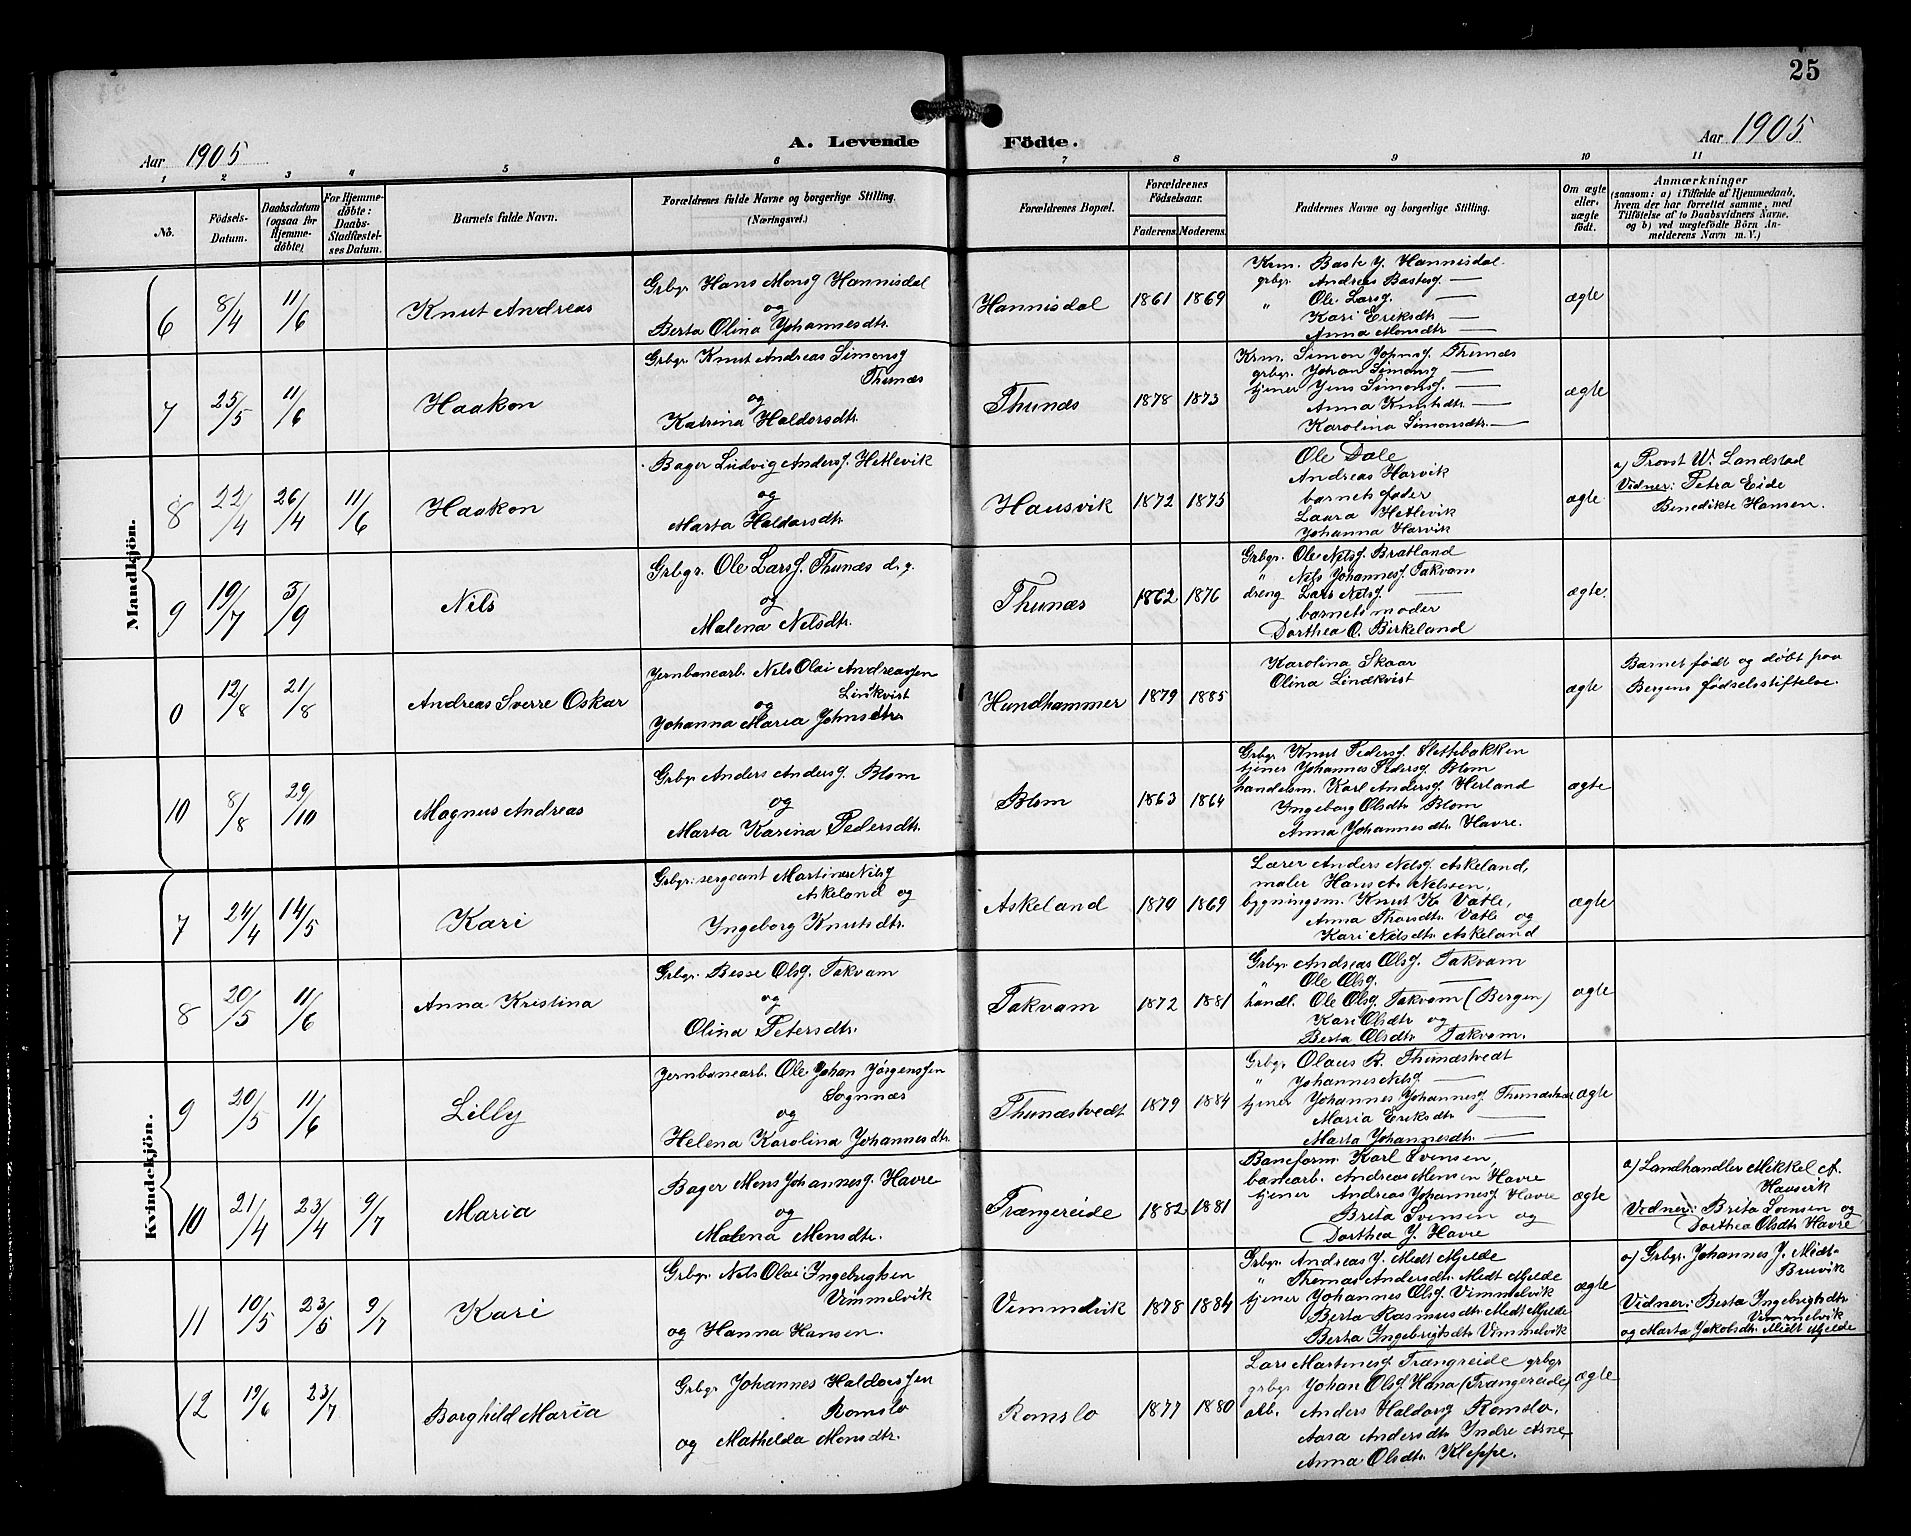 25
Aar 1905
A. Levende Födte.
Aar 1905
1 2 3 4 5 6 7 8 9 10 11
No.
Födsels-Datum.
Daabsdatum (ogsaa for Hjemme-döbte).
For Hjemme-döbte: Daabs-Stadfæstel-ses Datum.
Barnets fulde Navn.
Forældrenes fulde Navne og borgerlige Stilling.
(Næringsvei.)
Forældrenes Bopæl.
Forældrenes Födselsaar.
Faderens. Moderens.
Faddernes Navne og borgerlige Stilling.
Om ægte eller uægte födt.
Anmærkninger
(saasom: a) i Tilfælde af Hjemmedaab,
hvem der har forrettet samme, med
Tilföielse af to Daabsvidners Navne,
og b) ved uægtefödte Börn An-
melderens Navn m. V.)
Mandkjön.
6 8/4 11/6 Knut Andreas
Grbgr Hans Monsg Hannisdal
og
Berta Olina Johannesdtr.
Hannisdal 1861 1869
Krm. Baste J. Hannisdal
grbgr. Andreas Bastesg —
" Ole Larsg. —
Kari Eriksdtr —
Anna Monsdtr —
ægte
7 25/5 11/6 Haakon
Grbgr. Knut Andreas Simonsg
Thunæs
og
Katrina Haldorsdtr.
Thunæs 1878 1873
Krm. Simon Johnsg. Thunæs
grbgr. Johan Simonsg —
tjener Jens Simonsg. —
Anna Knutsdtr. —
Karolina Simonsdtr. —
ægte
8 22/4 26/4 11/6 Haakon
Bager Ludvig Andersg. Hetlevik
og
Marta Haldorsdtr.
Hausvik 1872 1875
Ole Dale
Andreas Harvik
barnets fader
Laura Hetlevik
Johanna Harvik
ægte
a) Provst W. Landstad
Vidner: Petra Eide
Benedikte Hansen.
9 19/7 3/9 Nils
Grbgr. Ole Larsg. Thunæs d. y.
og
Malena Nilsdtr.
Thunæs 1862 1876
Grbgr. Ole Nilsg. Bratland
" Nils Johannesg. Takvam
dreng Lars Nilsg. —
barnets moder
Dorthea O. Birkeland
ægte.
0 12/8 21/8 Andreas Sverre Oskar
Jernbanearb. Nils Olai Andreassen
Lindkvist
og
Johanna Maria Johnsdtr.
Hundhammer 1879 1885
Karolina Skaar
Olina Lindkvist
ægte
Barnet født og døbt paa
Bergens fødselsstiftelse.
10 8/8 29/10 Magnus Andreas
Grbgr Anders Andersg. Blom
og
Marta Karina Pedersdtr.
Blom 1863 1864
Grbgr Knut Pedersg. Slettebakken
tjener Johannes Pedersg. Blom
handelsm. Karl Andersg. Herland
Ingeborg Olsdtr Blom
Anna Johannesdtr. Havre.
ægte
Kvindekjön.
7 24/4 14/5 Kari
Grbgr. sergeant Martinus Nilsg
Askeland og
Ingeborg Knutsdtr.
Askeland 1870 1869
Lærer Anders Nilsg. Askeland,
maler Hans A. Nilssen,
bygningsm. Knut K. Vatle,
Anna Vatle og
Kari Nilsdtr. Askeland
ægte
8 20/5 11/6 Anna Kristina
Grbgr. Besse Olsg. Takvam
og
Olina Petersdtr.
Takvam 1872 1881
Grbgr. Andreas Olsg. Takvam
" Ole Olsg. —
handl. Ole Olsg. Takvam (Bergen)
Kari Olsdtr og
Berta Olsdtr. Takvam.
ægte
9 20/5 11/6 Lilly
Jernbanearb. Ole Johan Jørgenssen
Sognnæs
og
Helena Karolina Johannesdtr.
Thunæstvedt 1879 1884
Grbgr. Olaus R. Thunæstvedt
" Johannes Nilsg. —
tjener Johannes Johannesg Thunæstvedt
Maria Eriksdtr —
Marta Johannesdtr. —
ægte
10 21/4 23/4 9/7 Maria
Bager Mons Johannesg. Havre
og
Malena Monsdtr.
Trængereide 1882 1881
Baneform. Karl Svensen,
banearb. Andreas Monsen Havre
tjener Andreas Johannesg Havre
Brita Svensen og
Dorthea J. Havre
ægte
a) Landhandler Mikkel A.
Hausvik
Vidner: Brita Svensen og
Dorthea Olsdtr Havre
11 10/5 23/5 9/7 Kari
Grbgr. Nils Olai Ingebrigtsen
Vimmelvik
og Hanna Hansen.
Vimmelvik 1878 1884
Grbgr. Andreas J. Midt Mjelde
" Thomas Andersdtr. Midt Mjelde
tjener Johannes Olsg Vimmelvik
Berta Rasmusdtr. Midt Mjelde
Berta Ingebrigtsdtr. Vimmelvik
ægte
a) Grbgr. Johannes J. Midt-
Bruvik
Vidner: Berta Ingebrigtsdtr
Vimmelvik
og Marta Jakobsdtr. Midt Mjelde
12 19/6 23/7 Borghild Maria
Grbgr Johannes Haldorssen
Romslo
og Mathilda Monsdtr.
Romslo 1877 1880
Lars Martinesg. Trængreide grbgr
grbgr Johan Olsg Hana (Trængereide)
arb. Anders Haldorsg Romslo,
Aasa Andersdtr Indre Arne
Anna Olsdtr. Kleppe.
ægte